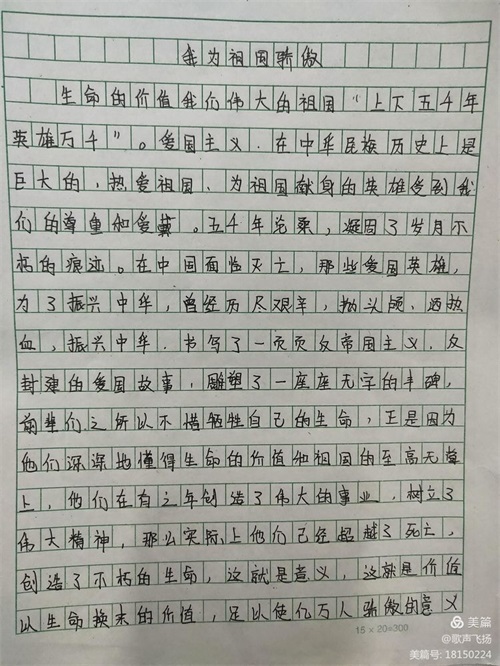 我为祖国骄傲
生命的价值我们伟大的祖国“上下五千年
英雄万千”。爱国主义.在中华民族历史上是
巨大的,热爱祖国、为祖国献身的英雄受到我
们的尊重和爱冀。五千年沧桑,凝固了岁月不
朽的痕迹。在中国面临灭亡,那些爱国英雄,
为了振兴中华,曾经历尽艰辛,抛头颅,洒热
血,振兴中华.书写了一页页反帝国主义.反
封建的爱国故事,雕塑了一座座无字的丰碑,
前辈们之所以不惜牺牲自己的生命,正是因为
他们深深地懂得生命的价值和祖国的至高无尊
上,他们在有之年创造了伟大的事业,树立了
伟大精神,那么实际上他们已经超越了死亡,
创造了不朽的生命,这就是意义,这就是价值
以生命换来的价值,足以使亿万人骄傲的意义
15×20=300
美篇
@歌声飞扬
美篇号: 18150224